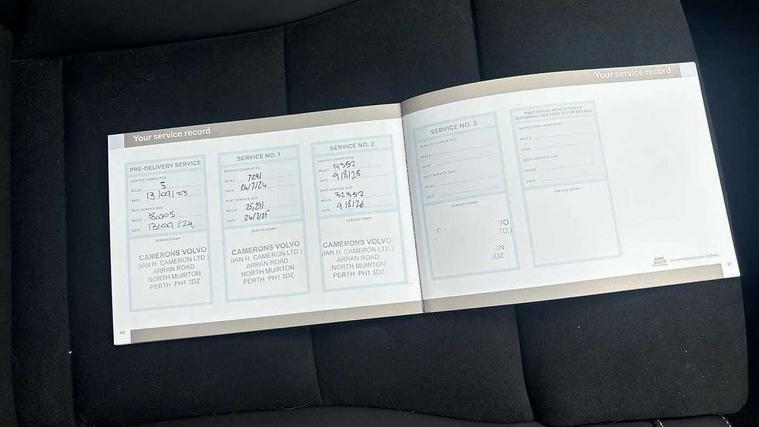 Your service record
PRE-DELIVERY SERVICE
SERVICE COMPLETED
MILES 5
DATE 13/09/23
NEXT SERVICE DUE
MILES 18,005
DATE 13/09/24
SERVICE STAMP
CAMERONS VOLVO
(IAN H. CAMERON LTD.)
ARRAN ROAD
NORTH MUIRTON
PERTH PH1 3DZ
SERVICE NO. 1
SERVICE COMPLETED
MILES 7291
DATE 24/7/24
NEXT SERVICE DUE
MILES 25,291
DATE 24/7/25
SERVICE STAMP
CAMERONS VOLVO
(IAN H. CAMERON LTD.)
ARRAN ROAD
NORTH MUIRTON
PERTH PH1 3DZ
SERVICE NO. 2
SERVICE COMPLETED
MILES 14352
DATE 9/8/25
NEXT SERVICE DUE
MILES 32352
DATE 9/8/26
SERVICE STAMP
CAMERONS VOLVO
(IAN H. CAMERON LTD.)
ARRAN ROAD
NORTH MUIRTON
PERTH PH1 3DZ
Your service record
SERVICE NO. 3
SERVICE COMPLETED
MILES
DATE
NEXT SERVICE DUE
MILES
DATE
SERVICE STAMP
C VO
LTD.)
ON
3DZ
FREE VISUAL HEALTH CHECK
(OPTIONAL) SEE PAGE 37 FOR DETAILS
INSPECTION COMPLETED
MILES
DATE
NEXT SERVICE DUE
MILES
DATE
SERVICE STAMP